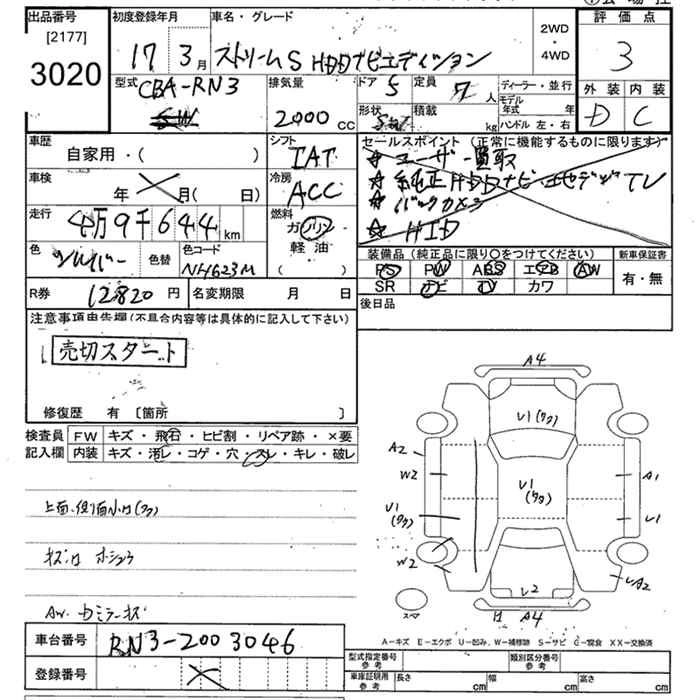 出品番号
[2177]
3020
初度登録年月
17 3月
車名・グレード
ストリームS HDDナビエディション
2WD
・
4WD
評価点
3
外装 内装
D C
型式
CBA-RN3
排気量
2000 cc
ドア 5
定員 7 人
ディーラー・並行
モデル年式 年
形状
積載 kg
ハンドル 左・右
車歴
自家用・( )
シフト
IAT
車検
年 月( 日)
冷房
ACC
走行
4万9千644 km
燃料
ガソリン
軽油
( )
色
シルバー
色替
色コード
NH623M
セールスポイント(正常に機能するものに限ります)
★ ユーザー買取
★ 純正HDDナビ 地デジTV
★ バックカメラ
★ HID
装備品(純正品に限り○をつけてください)
PS PW ABS エアB AW
SR ナビ TV カワ
新車保証書
有・無
R券 12820 円
名変期限 月 日
後日品
注意事項申告欄(不具合内容等は具体的に記入して下さい)
売切スタート
修復歴 有 〔箇所 〕
検査員
記入欄
FW キズ・飛石・ヒビ割・リペア跡・×要
内装 キズ・汚レ・コゲ・穴・スレ・キレ・破レ
A4
U1(ワク)
A2
W2
U1
(ワク)
U1
(ワク)
A1
U1
W2
U2
UA2
A4
スペア
A-キズ E-エクボ U-凹み W-補修跡 S-サビ C-腐食 XX-交換済
車台番号 RN3-2003046
登録番号
型式指定番号
参考
類別区分番号
参考
車庫証明用
参考
長さ cm
幅 cm
高さ cm